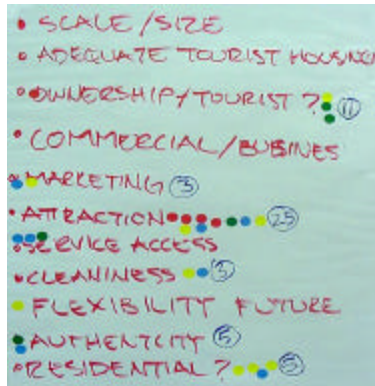 • SCALE/SIZE
• ADEQUATE TOURIST HOUSING
• OWNERSHIP/TOURIST ? 11
• COMMERCIAL/BUSINES
• MARKETING 3
• ATTRACTION 25
• SERVICE ACCESS
• CLEANINESS 3
• FLEXIBILITY FUTURE
• AUTHENTCITY 5
• RESIDENTIAL ? 5